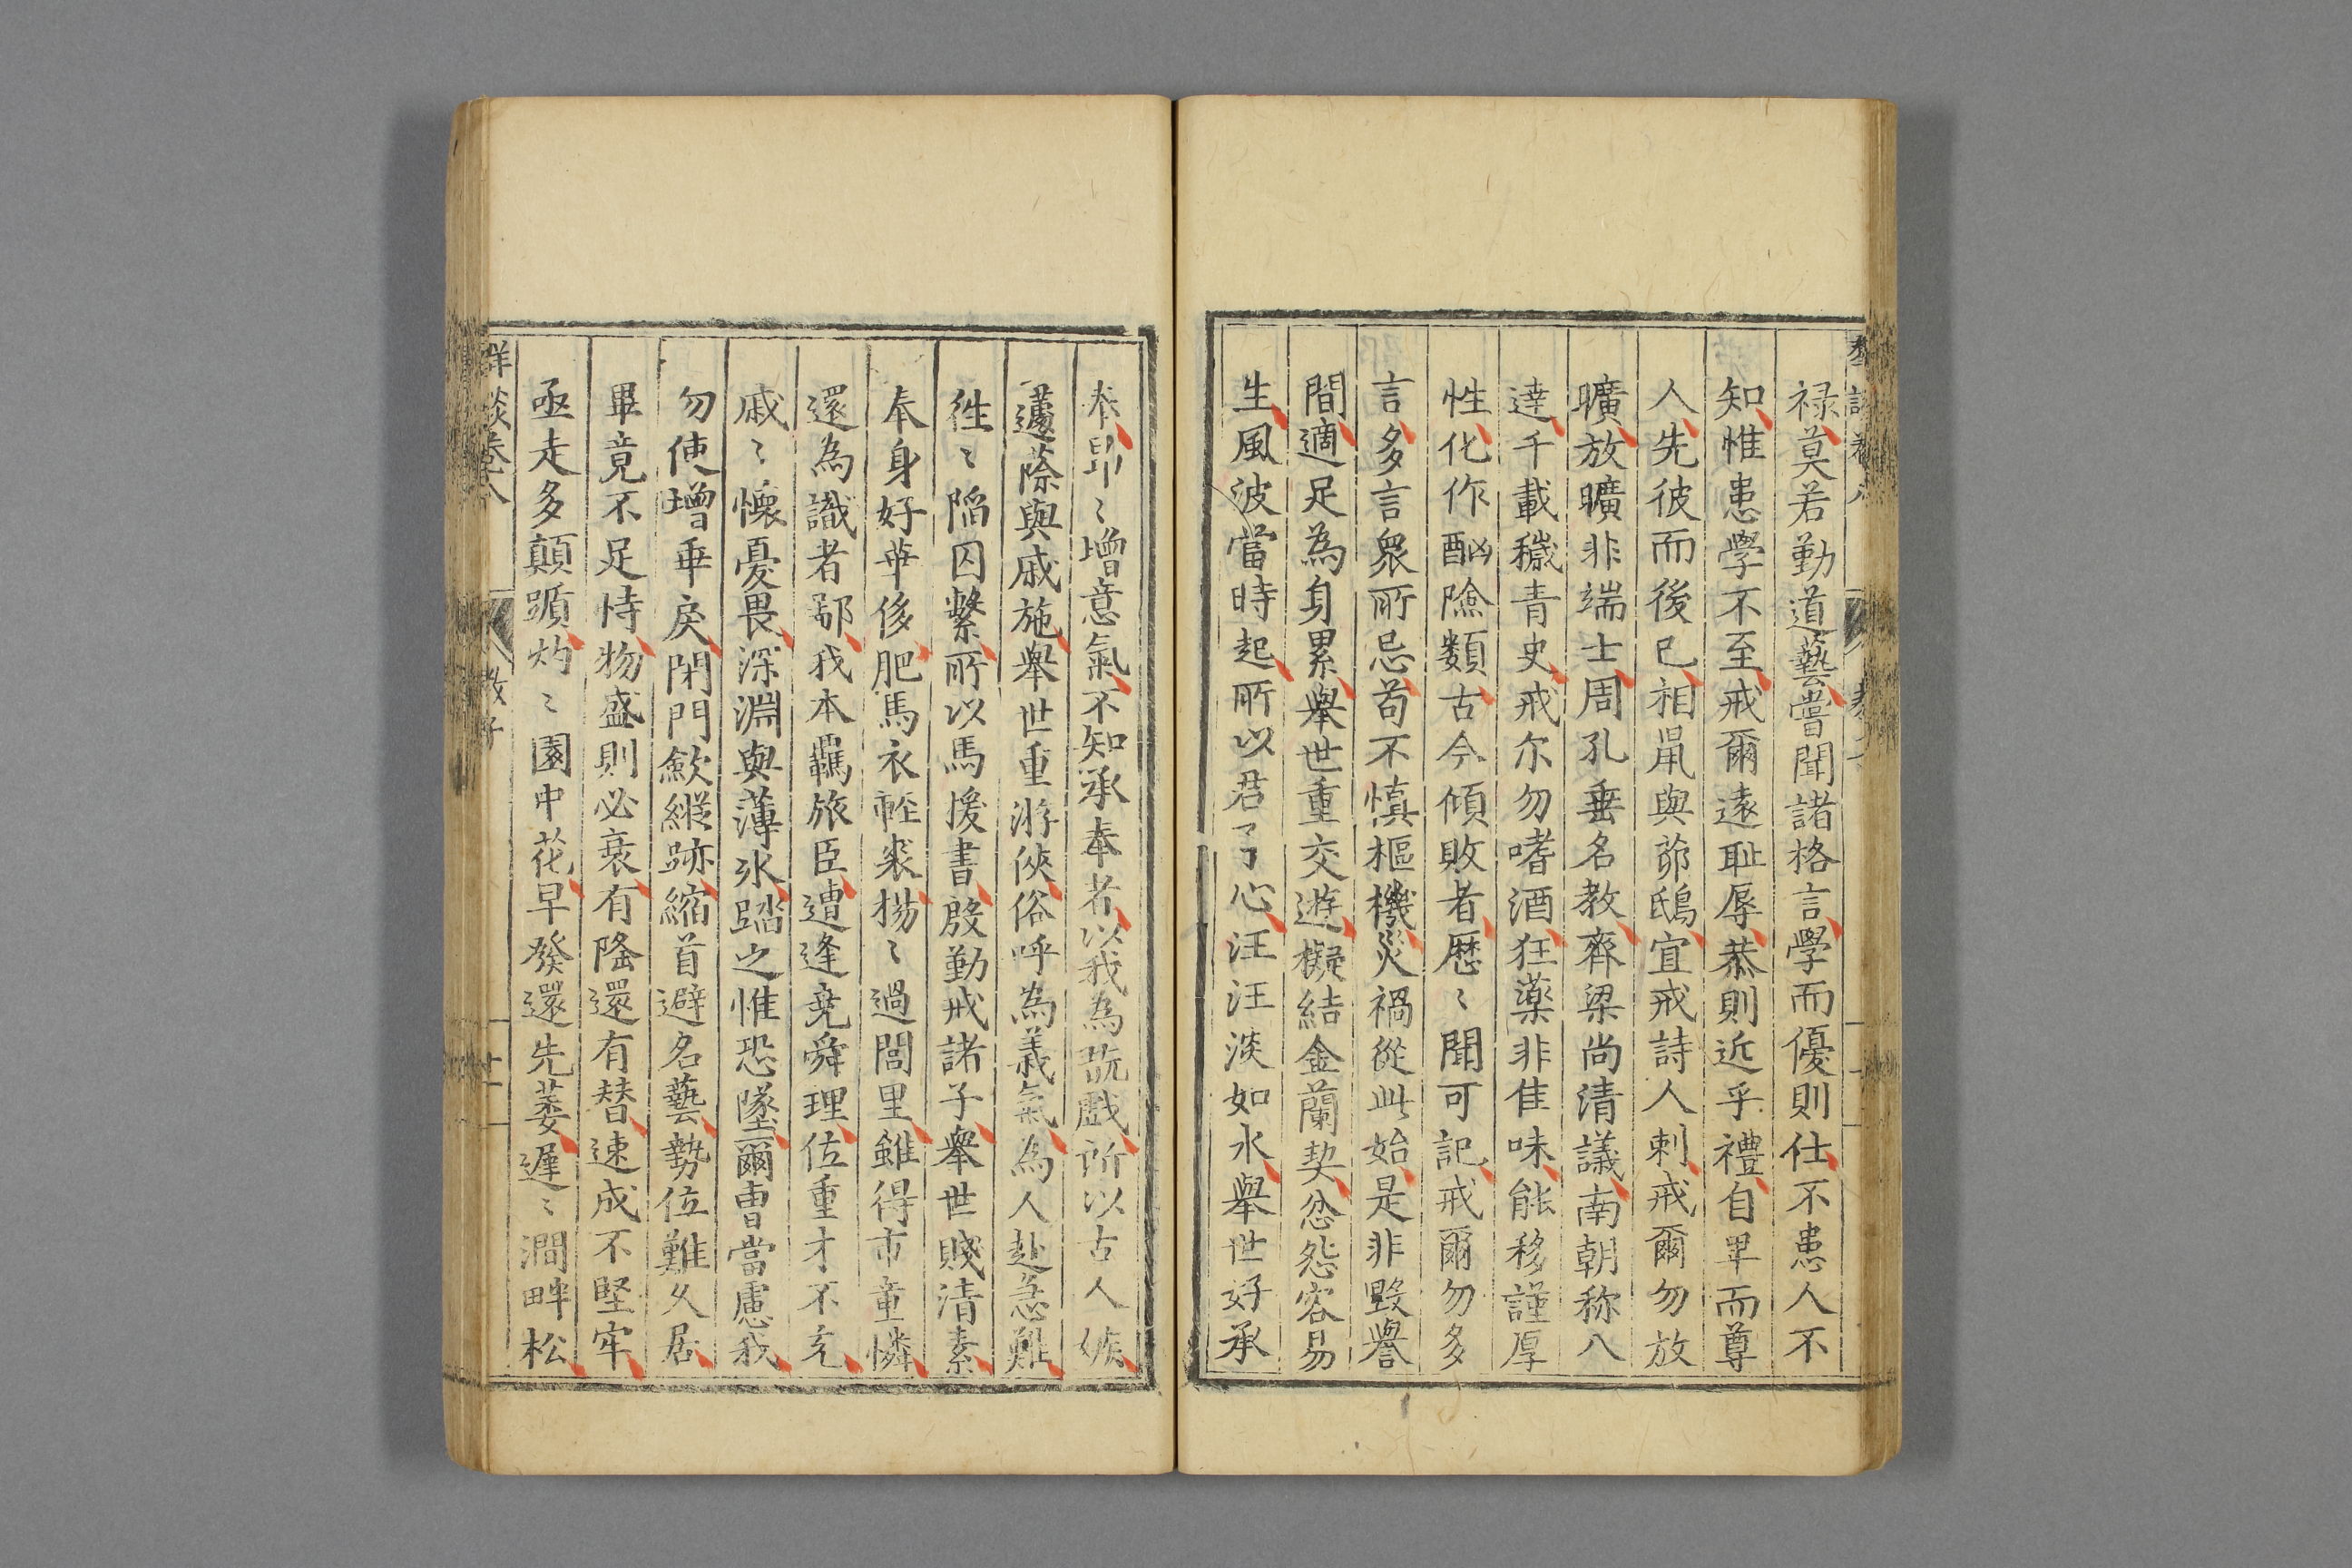 禄莫若勤道藝嘗聞諸格言學而優則仕不患人不
知惟患學不至戒爾遠耻辱恭則近乎禮自畢而尊
人先彼而後已相鼠與茆鴟宜戒詩人刺戒爾勿放
曠放曠非端士周孔垂名教齊梁尚清議南朝称八
達千載穢青史戒尔勿嗜酒狂藥非佳味能移謹厚
性化作酗險類古今傾敗者歷〻聞可記戒爾勿多
言多言衆所忌苟不慎樞機災禍從此始是非毀譽
間適足為身累舉世重交遊擬結金蘭契忿怨容易
生風波當時起所以君子心汪汪淡如水舉世好承
奉昂〻增意氣不知承奉者以我為翫戲所以古人嫉
蘧蒢與戚施舉世重游俠俗呼為義氣為人赴急難
徃〻陷囚繫所以馬援書殷勤戒諸子舉世賤清素
奉身好華侈肥馬衣輕裘揚〻過閭里雖得市童憐
還為識者鄙我本羈旅臣遭逢堯舜理位重才不充
戚〻懷憂畏深淵與薄氷蹈之惟恐墜爾曹當慮我
勿使增垂戾閉門歛縱跡縮首避名藝勢位難乆居
畢竟不足恃物盛則必衰有隆還有替速成不堅牢
亟走多顛躓灼〻園中花早發還先萎遲〻澗畔松
群談卷八
教子